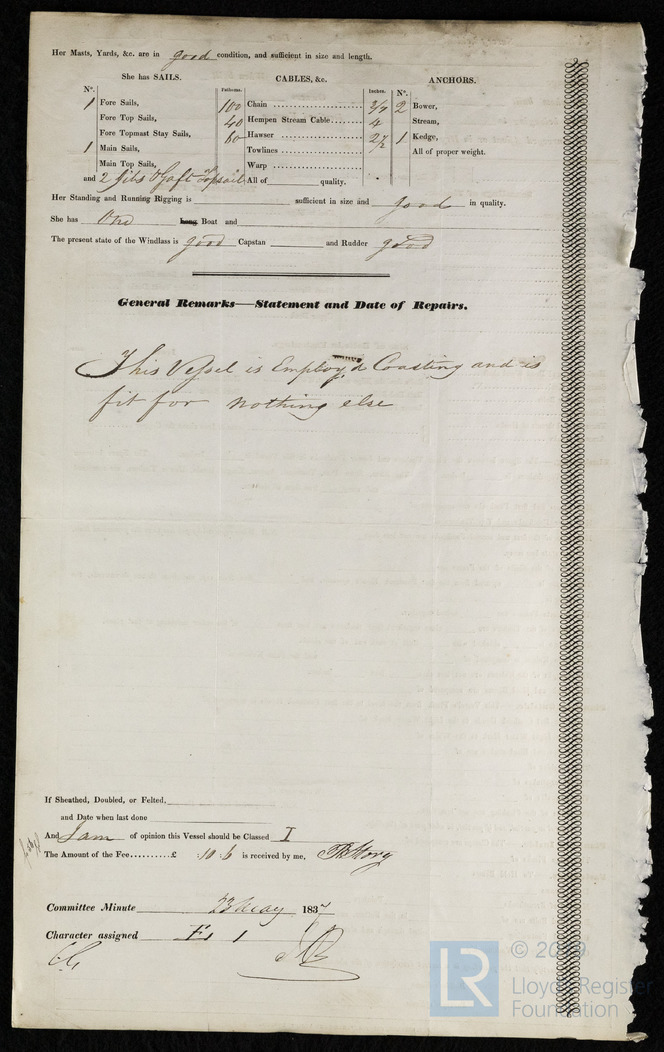 Her Masts, Yards, &c. are in good condition, and sufficient in size and length.
She has SAILS. CABLES, &c. ANCHORS.
Nº. Fathoms. Inches. Nº.
1 Fore Sails, 100 Chain 3/4 2 Bower,
Fore Top Sails, 40 Hempen Stream Cable 4 Stream,
Fore Topmast Stay Sails, 60 Hawser 2 1/2 1 Kedge,
1 Main Sails, Towlines All of proper weight.
Main Top Sails, Warp
and 2 jibs & Gaft Topsail All of quality.
Her Standing and Running Rigging is sufficient in size and good in quality.
She has One Long Boat and
The present state of the Windlass is good Capstan and Rudder good
General Remarks—Statement and Date of Repairs.
This Vessel is Employ'd Coasting and is
fit for nothing else
If Sheathed, Doubled, or Felted,
and Date when last done
And I am of opinion this Vessel should be Classed I
The Amount of the Fee...........£ :10:6 is received by me,
Committee Minute 23 May 1837
Character assigned E 1
LR
© 2019
Lloyd's Register
Foundation